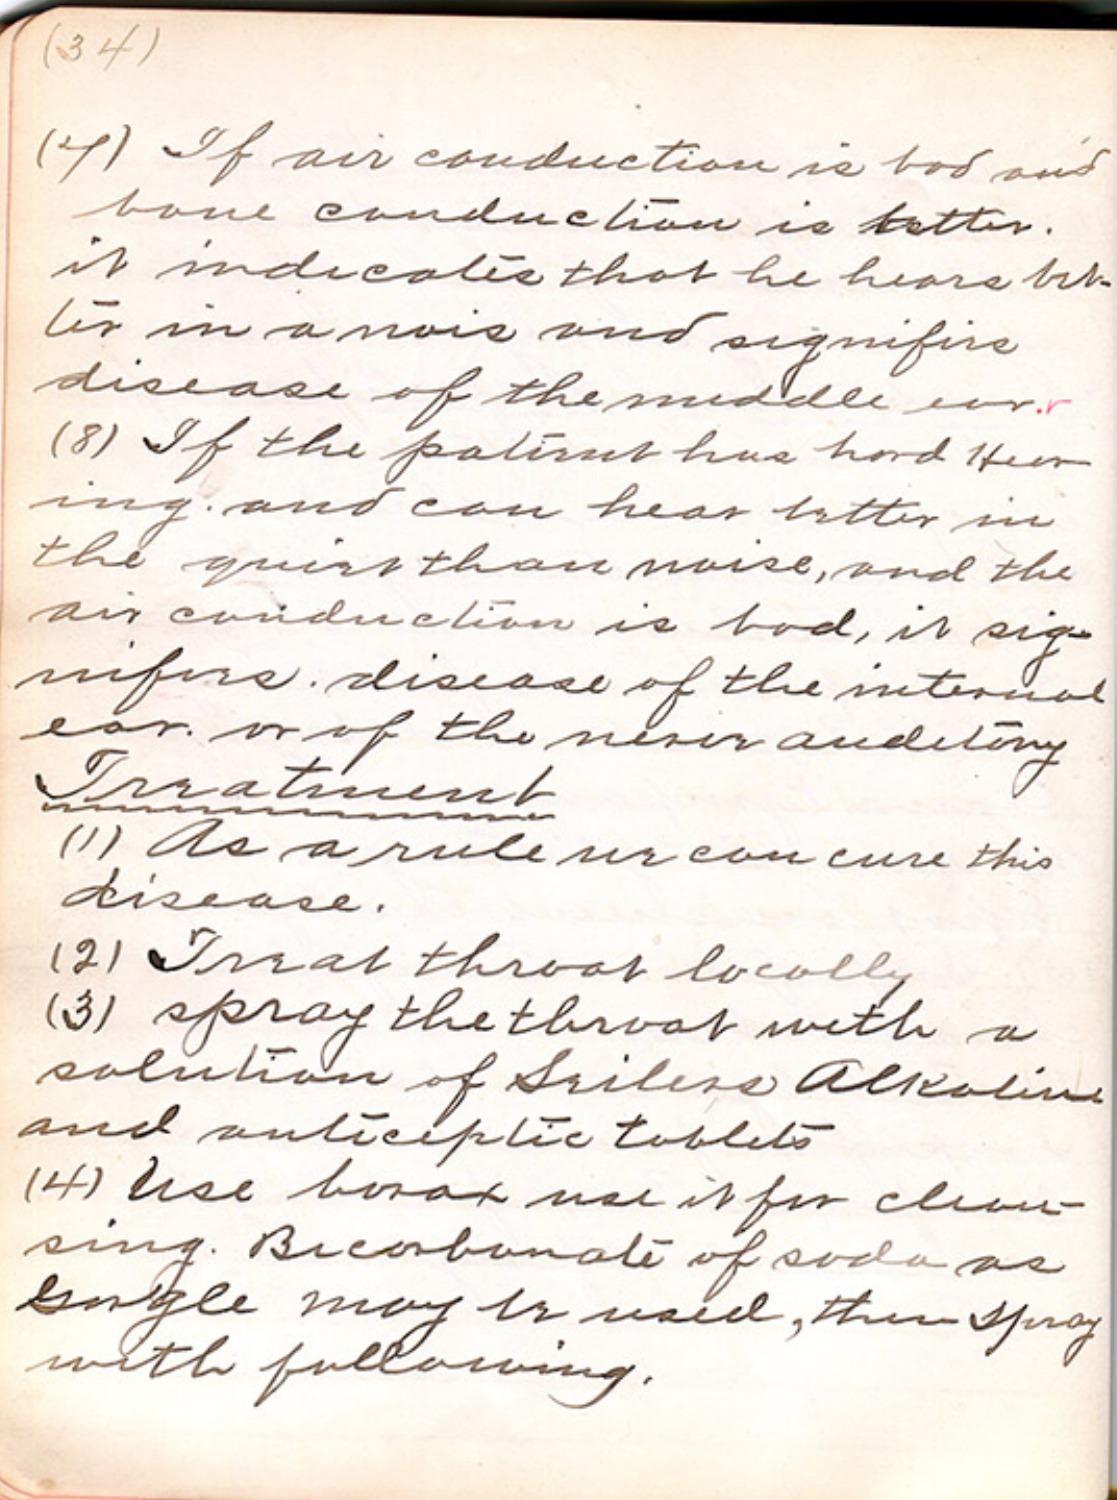 (34)
(7) If air conduction is bad and
bone conduction is better.
it indicates that he hears bet-
ter in a nois and signifies
disease of the middle ear.
(8) If the patient has hard Hear
ing. and can hear better in
the quiet than noise, and the
air conduction is bad, it sig-
nifies. disease of the internal
ear. or of the nerve auditory
Treatment
(1) As a rule we can cure this
disease.
(2) Treat throat locally
(3) spray the throat with a
solution of Seilers Alkaline
and anticeptic tablets
(4) Use borax use it for clean-
sing. Bicarbonate of soda as
Gargle may be used, then spray
with following.